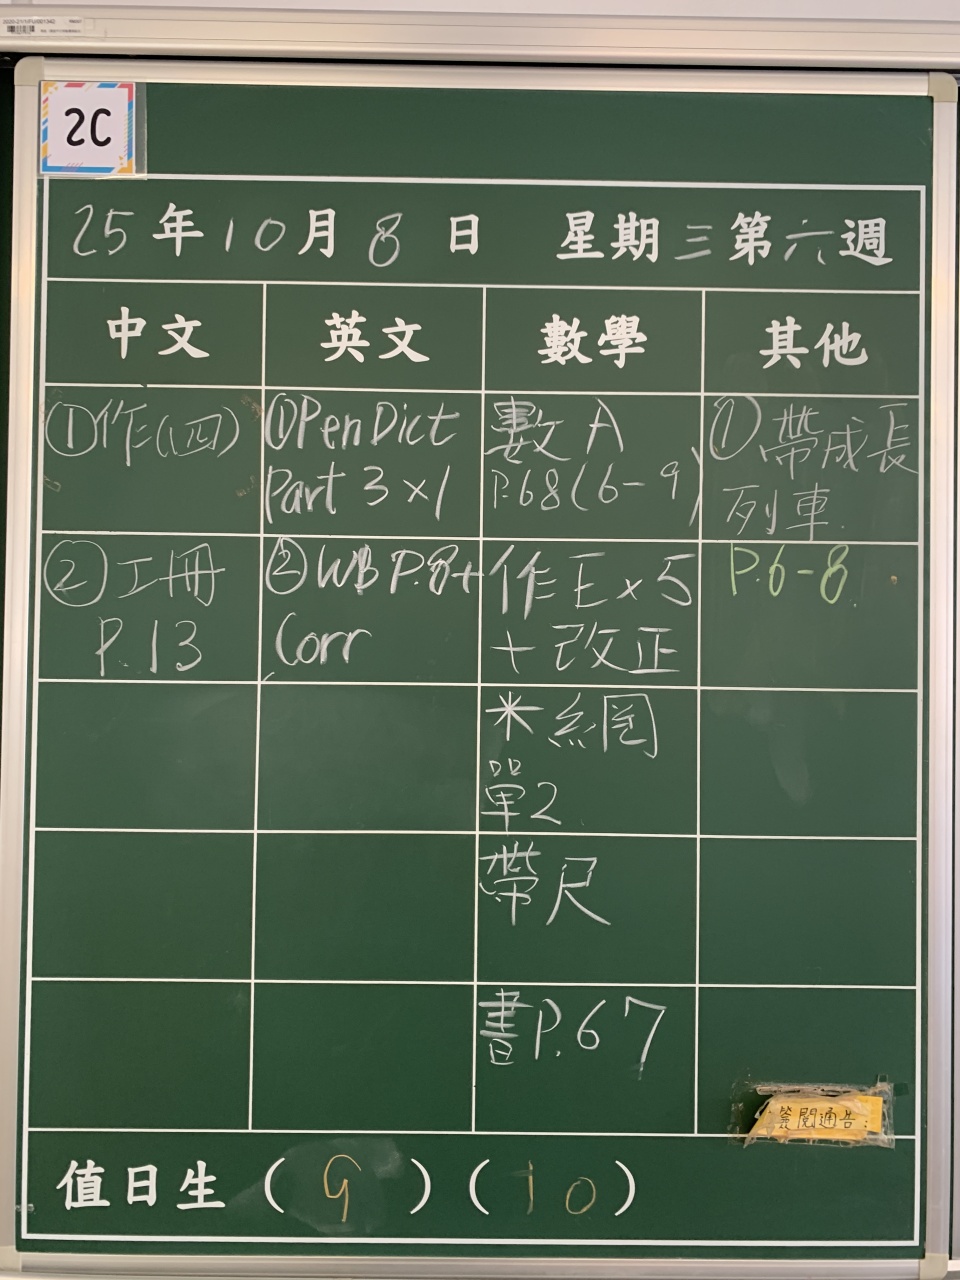 2C
25年10月8日 星期三第六週
中文 英文 數學 其他
①作(四)
①Pen Dict
Part 3×1
數A
P.68(6-9)
①帶成長
列車
②工冊
P.13
②WB P.8+
Corr
作E×5
+改正
P.6-8
米網
單2
帶尺
書P.67
簽閱通告:
值日生(9)(10)